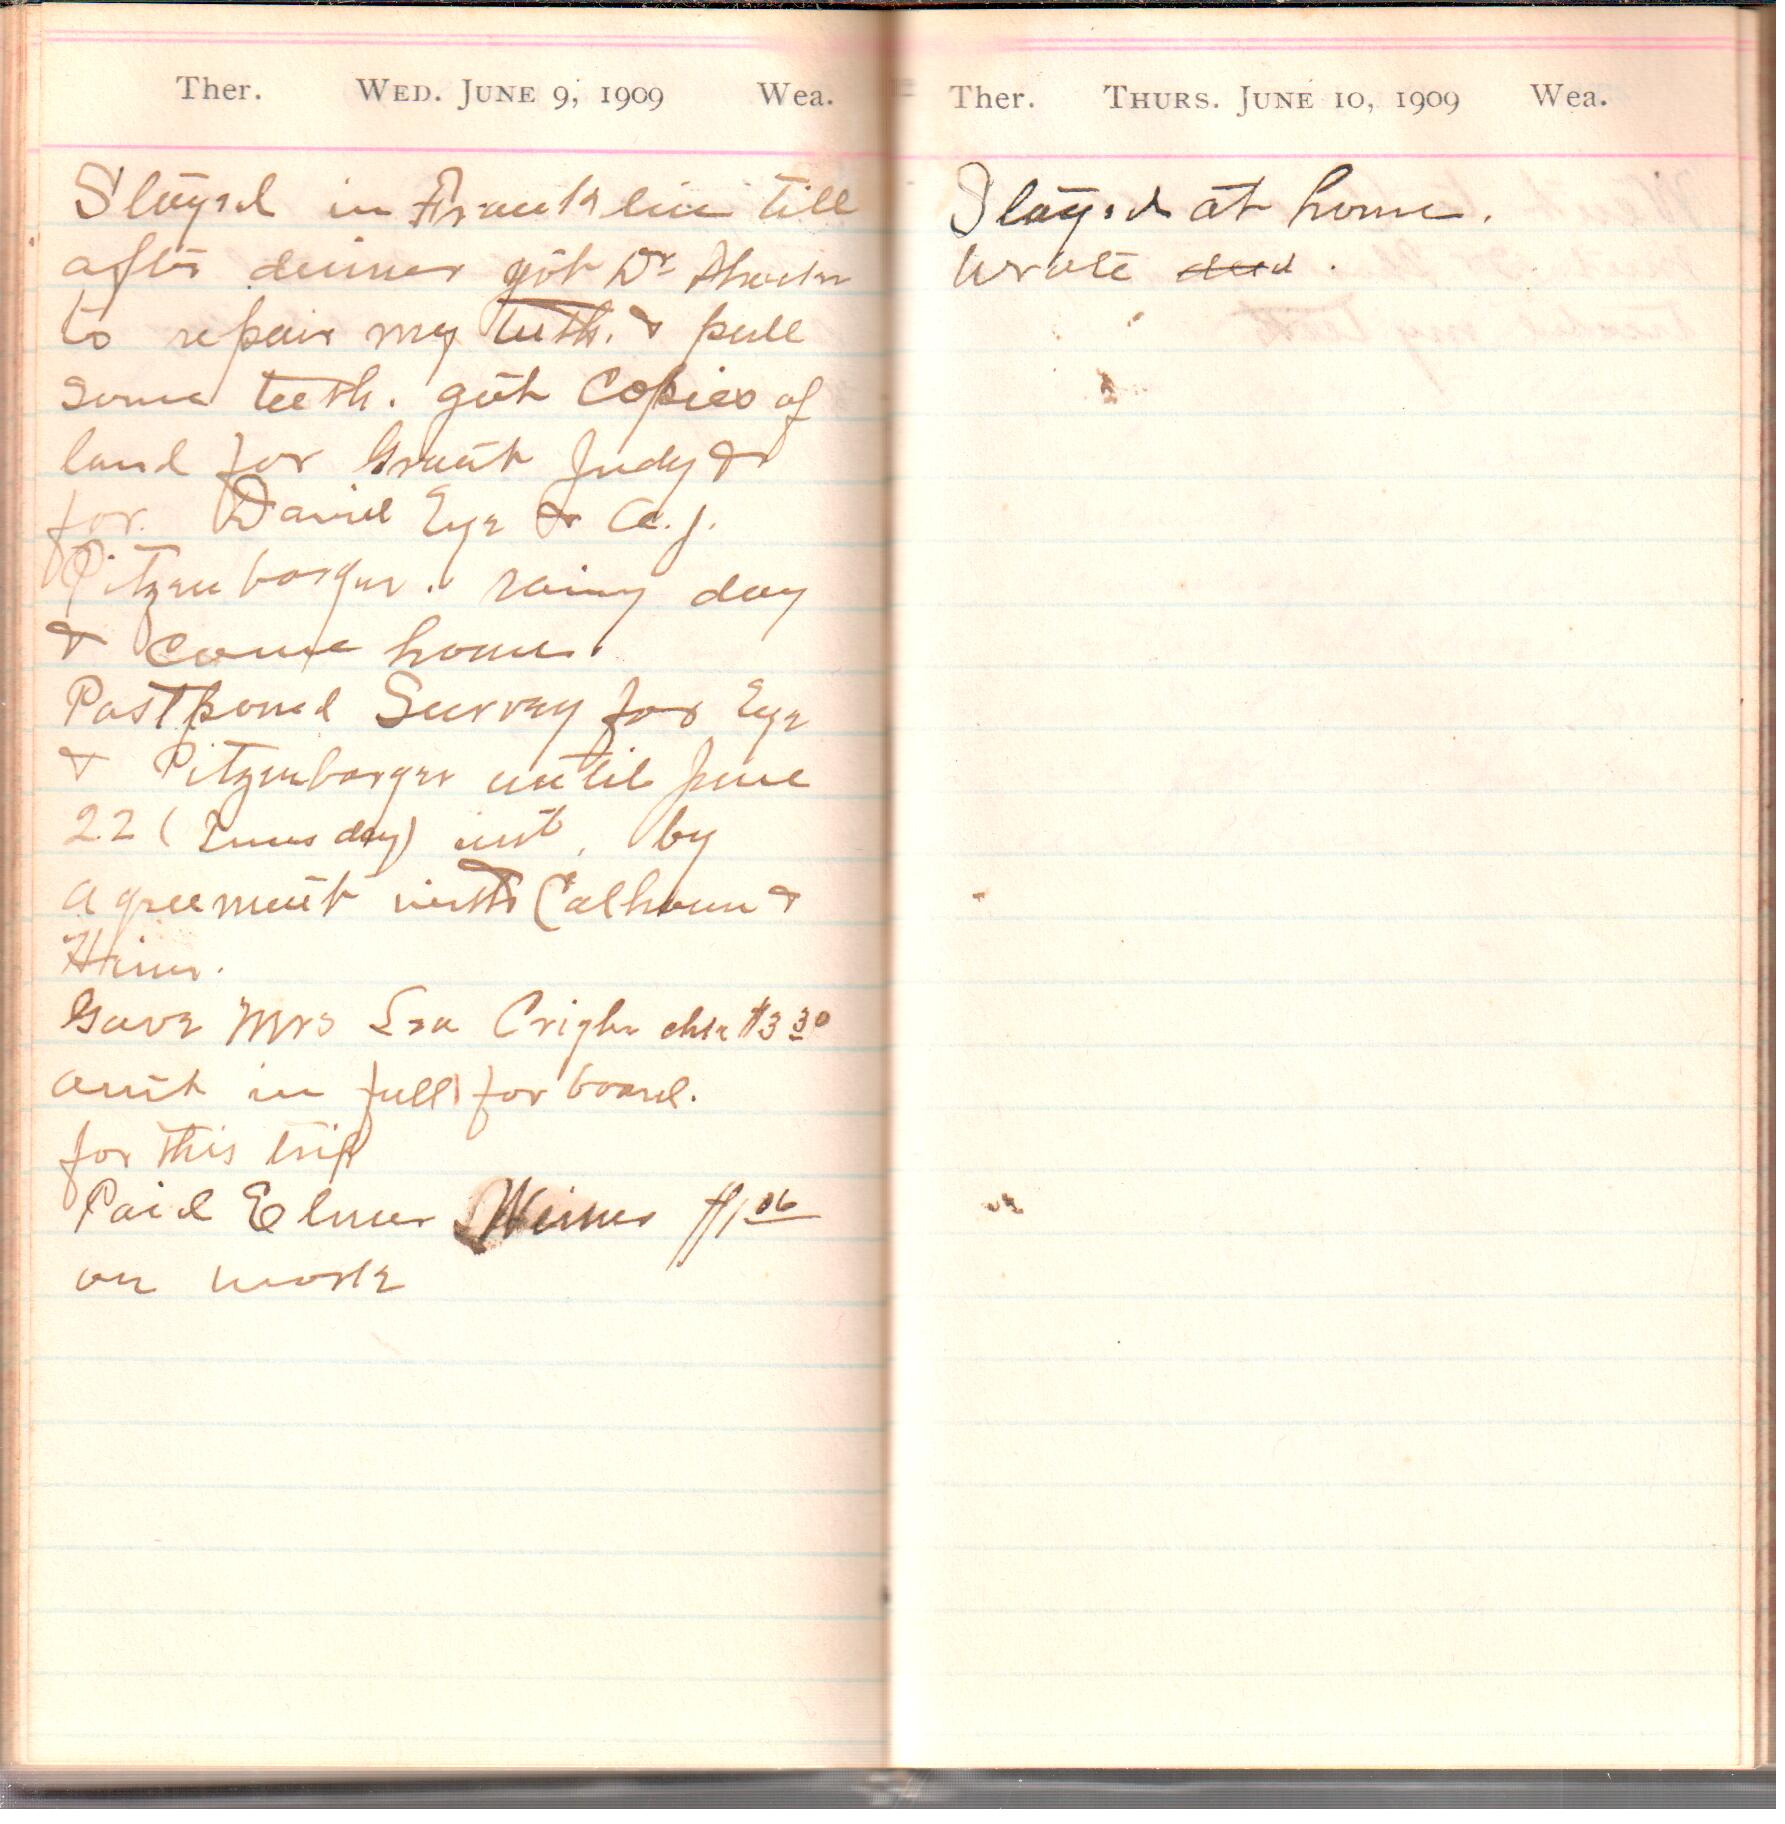 Ther. WED. JUNE 9, 1909 Wea.
Stayed in Franklin till
after dinner got Dr
to repair my teeth. & pull
some teeth. got Copies of
land for Grant Judy &
for Daniel Eye & A. J.
Pitzenbarger. rainy day
& come home.
Postponed Survey for Eye
& Pitzenbarger until June
22 (Tuesday) inst. by
agreement with Calhoun &
Hiner.
Gave Mrs chk $3 30
amt in full for board.
for this trip
Paid Elmer $1 06
on work
Ther. THURS. JUNE 10, 1909 Wea.
Stayed at home.
Wrote deed.